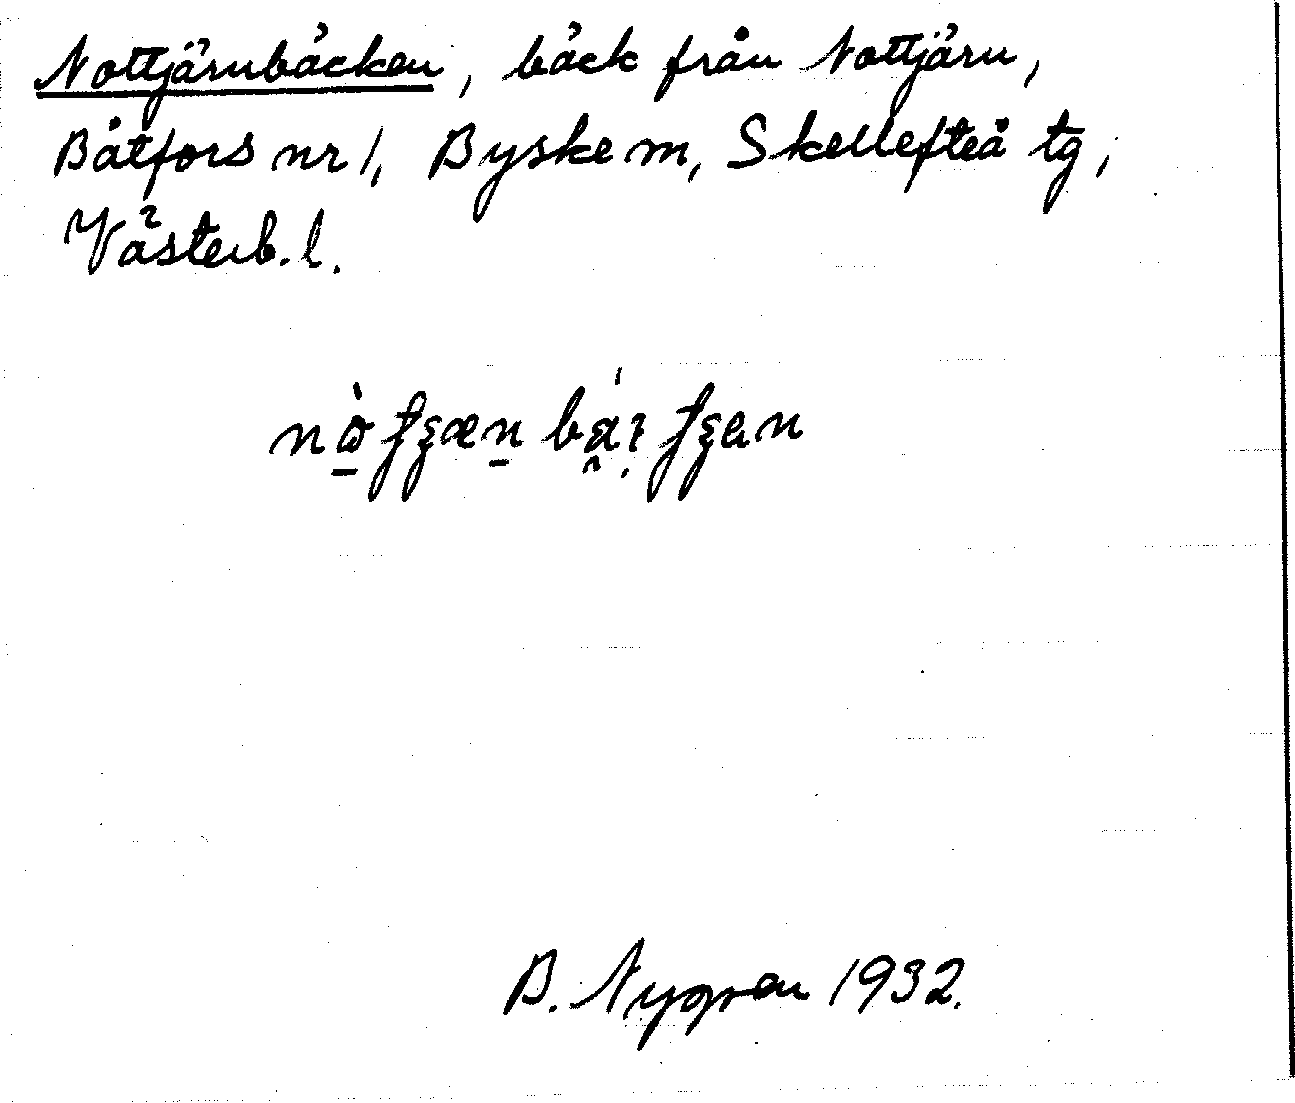 Nottjärnbäcken, bäck från Nottjärn,
Båtfors nr 1, Byske m, Skellefteå tg,
Västerb. l.
B. Nygren 1932.